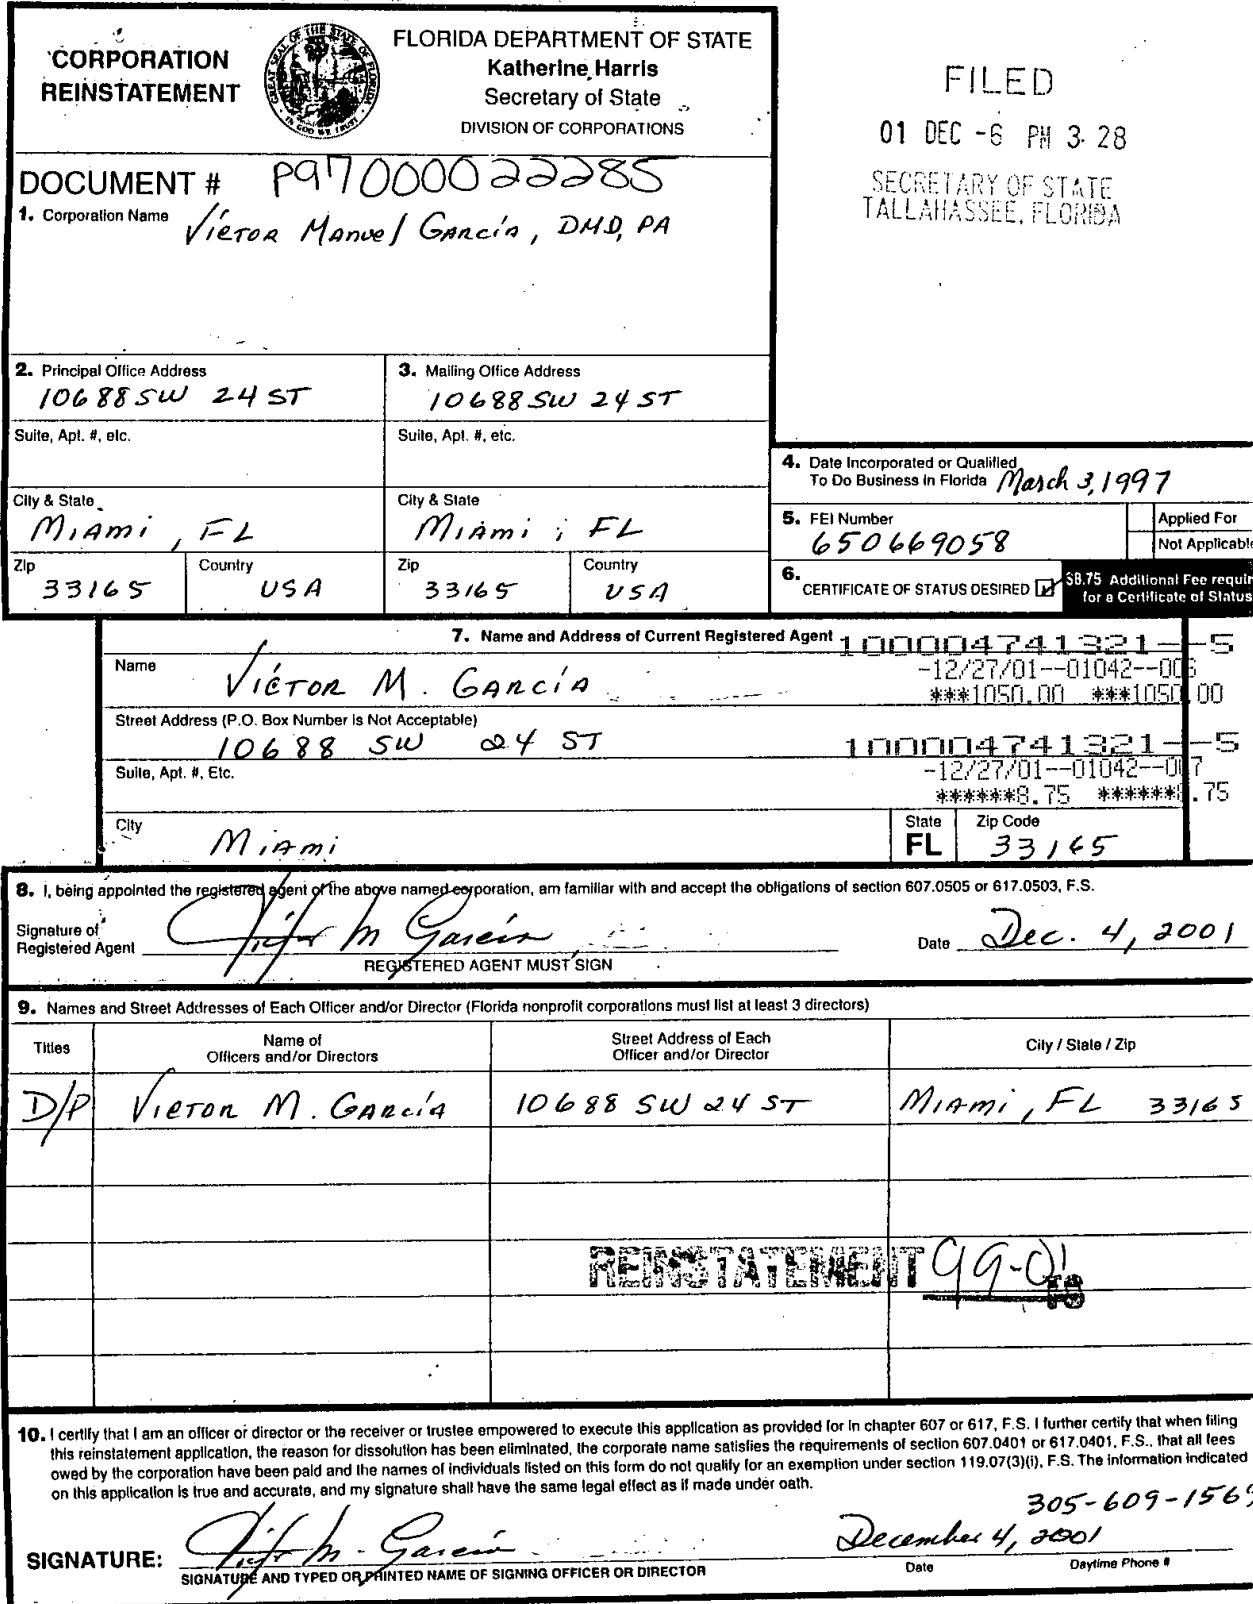 CORPORATION
REINSTATEMENT
GREAT SEAL OF THE STATE OF FLORIDA
IN GOD WE TRUST
FLORIDA DEPARTMENT OF STATE
Katherine Harris
Secretary of State
DIVISION OF CORPORATIONS
FILED
01 DEC -6 PM 3:28
SECRETARY OF STATE
TALLAHASSEE, FLORIDA
DOCUMENT # P97000022285
1. Corporation Name
Víctor Manuel García, DMD, PA
2. Principal Office Address
10688 SW 24 ST
3. Mailing Office Address
10688 SW 24 ST
Suite, Apt. #, etc.
Suite, Apt. #, etc.
City & State
Miami, FL
City & State
Miami, FL
Zip
33165
Country
USA
Zip
33165
Country
USA
4. Date Incorporated or Qualified
To Do Business in Florida March 3, 1997
5. FEI Number
650669058
Applied For
Not Applicable
6. CERTIFICATE OF STATUS DESIRED
$8.75 Additional Fee requir
for a Certificate of Status
7. Name and Address of Current Registered Agent
100004741321--5
-12/27/01--01042--006
***1050.00 ***1050.00
Name
Víctor M. García
Street Address (P.O. Box Number is Not Acceptable)
10688 SW 24 ST
100004741321--5
-12/27/01--01042--007
******8.75 ******8.75
Suite, Apt. #, Etc.
City
Miami
State
FL
Zip Code
33165
8. I, being appointed the registered agent of the above named corporation, am familiar with and accept the obligations of section 607.0505 or 617.0503, F.S.
Signature of
Registered Agent
Victor M García
REGISTERED AGENT MUST SIGN
Date Dec. 4, 2001
9. Names and Street Addresses of Each Officer and/or Director (Florida nonprofit corporations must list at least 3 directors)
Titles
Name of
Officers and/or Directors
Street Address of Each
Officer and/or Director
City / State / Zip
D/P Victor M. García 10688 SW 24 ST Miami, FL 33165
REINSTATEMENT 99-01
10. I certify that I am an officer or director or the receiver or trustee empowered to execute this application as provided for in chapter 607 or 617, F.S. I further certify that when filing
this reinstatement application, the reason for dissolution has been eliminated, the corporate name satisfies the requirements of section 607.0401 or 617.0401, F.S., that all fees
owed by the corporation have been paid and the names of individuals listed on this form do not qualify for an exemption under section 119.07(3)(i), F.S. The information indicated
on this application is true and accurate, and my signature shall have the same legal effect as if made under oath.
305-609-156
SIGNATURE: Victor M. García
December 4, 2001
SIGNATURE AND TYPED OR PRINTED NAME OF SIGNING OFFICER OR DIRECTOR
Date
Daytime Phone #